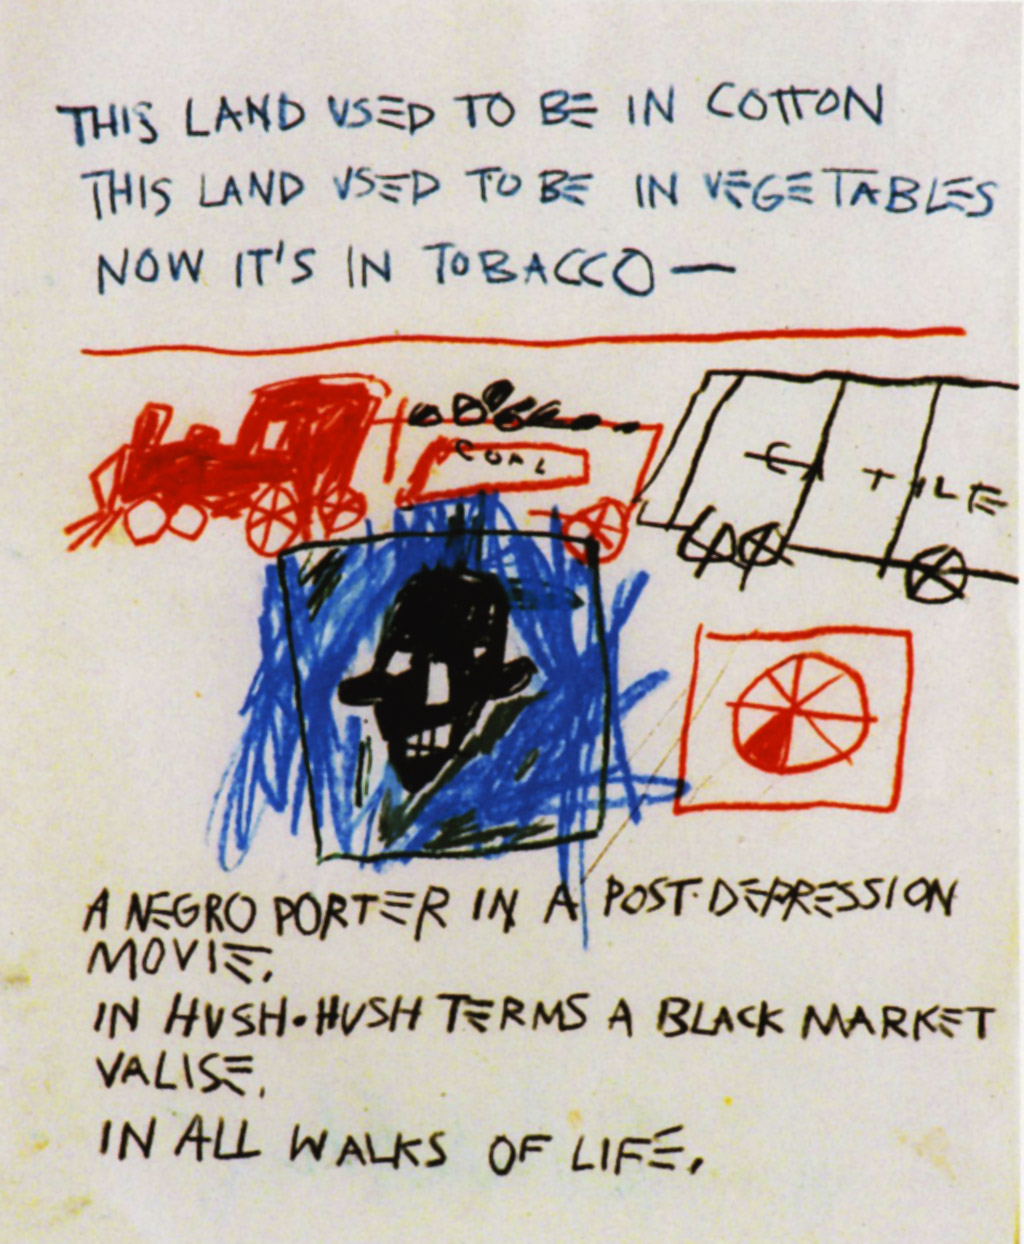 THIS LAND USED TO BE IN COTTON
THIS LAND USED TO BE IN VEGETABLES
NOW IT'S IN TOBACCO —
COAL
CATTLE
A NEGRO PORTER IN A POST·DEPRESSION
MOVIE,
IN HUSH·HUSH TERMS A BLACK MARKET
VALISE,
IN ALL WALKS OF LIFE,